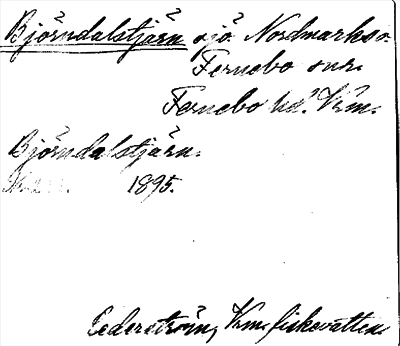 Björndalstjärn sjö Nordmarks o.
Fernebo snr.
Fernebo hd. Vrm.
Björndalstjärn.
1895.
Cederström, Vrm. fiskevatten.